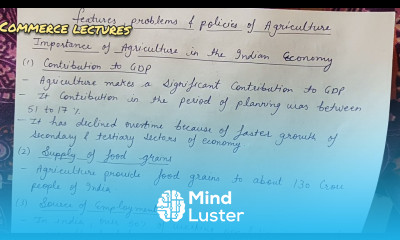 COMMERCE LECTURES
Features, problems & policies of Agriculture
Importance of Agriculture in the Indian Economy
(1) Contribution to GDP
- Agriculture makes a significant Contribution to GDP
- It Contribution in the period of planning was between
51 to 17 %
- It has declined overtime because of faster growth of
Secondary & tertiary Sectors of economy
(2) Supply of food grains
- Agriculture provide food grains to about 130 Crore
people of India
(3) Source of Employment
- In India, over
Mind
Luster